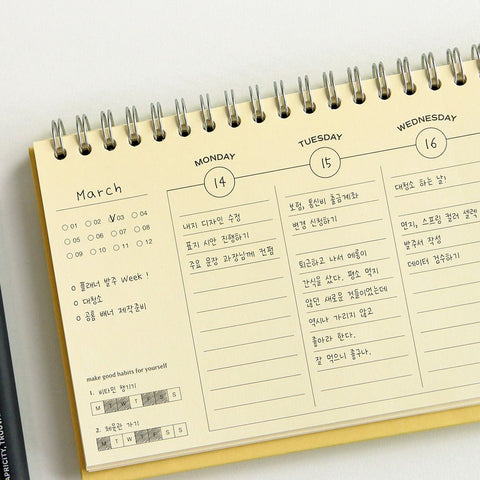 March
01 02 03 04
05 06 07 08
09 10 11 12
플래너 발주 Week !
대청소
공룸 배너 제작준비
make good habits for yourself
1. 비타민 챙기기
M T W T F S S
2. 체육관 가기
M T W T F S S
MONDAY
14
내지 디자인 수정
표지 시안 진행하기
주요 문장 과장님께 컨펌
TUESDAY
15
보험, 통신비 출금계좌
변경 신청하기
퇴근하고 나서 메롱이
간식을 샀다. 평소 먹지
않던 새로운 것들이었는데
역시나 가리지 않고
좋아라 한다.
잘 먹으니 좋구나.
WEDNESDAY
16
대청소 하는 날!
면지, 스프링 컬러 셀렉
발주서 작성
데이터 검수하기
APRICITY, TROUV